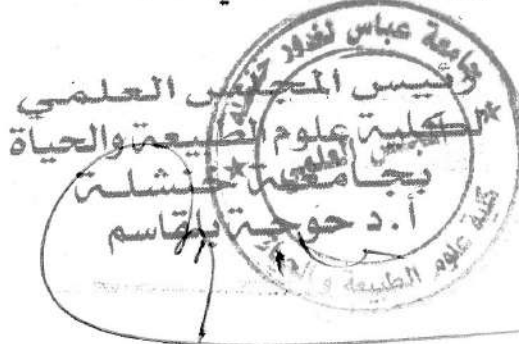 رئيس المجلس العلمي
لكلية علوم الطبيعة والحياة
بجامعة خنشلة
أ.د حوحة بلقاسم
جامعة عباس لغرور خنشلة
المجلس العلمي
كلية علوم الطبيعة و الحياة